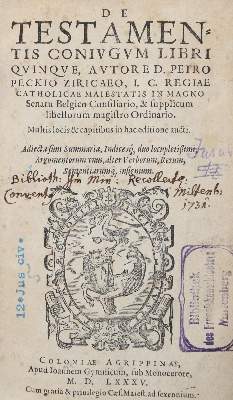 DE
TESTAMEN-
TIS CONIVGVM LIBRI
QVINQVE, AVTORE D. PETRO
PECKIO ZIRICAEO, I. C. REGIAE
CATHOLICAE MAIESTATIS IN MAGNO
Senatu Belgico Consiliario, & supplicum
libellorum magistro Ordinario.
Multis locis & capitibus in hac editione aucti.
Adiecta sunt Summaria, Indicesq́; duo locupletissimi,
Argumentorum unus, alter Verborum, Rerum,
Sententiarumq́; insignium.
Biblioth: Fr. Min. Recollect.
Convent
Miltenb:
1732.
12*Jus civ*
Bibliothek
des Franziskanerklosters
Miltenberg
COLONIAE AGRIPPINAE,
Apud Ioannem Gymnicum, sub Monocerote,
M. D. LXXXV.
Cum gratia & priuilegio Caes. Maiest. ad sexennium.